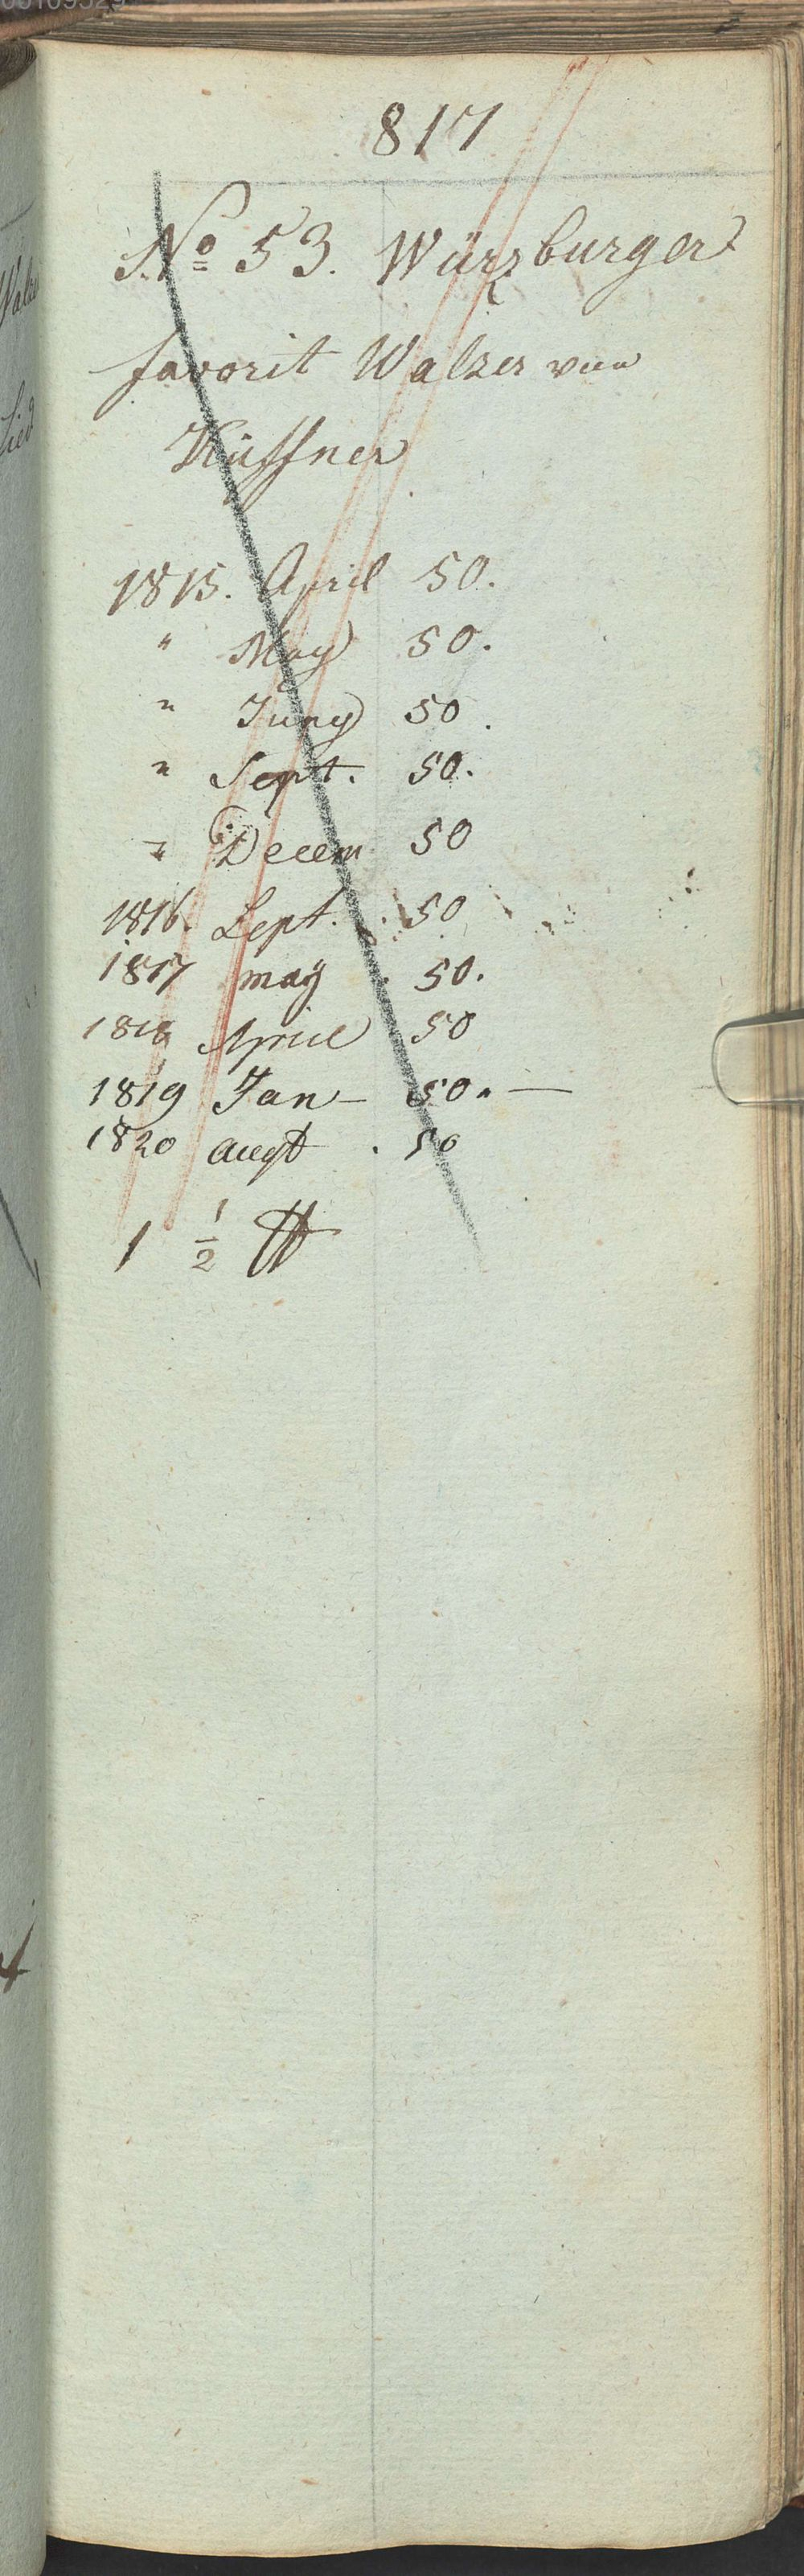 817
No 53. Würzburger
favorit Walzer von
Küffner
1815. April 50.
" May 50.
" Juny 50.
" Sept. 50.
" Decem 50
1816. Sept. 50
1817 may 50.
1818 April 50
1819 Jan– 50. —
1820 augt . 50
1 1/2